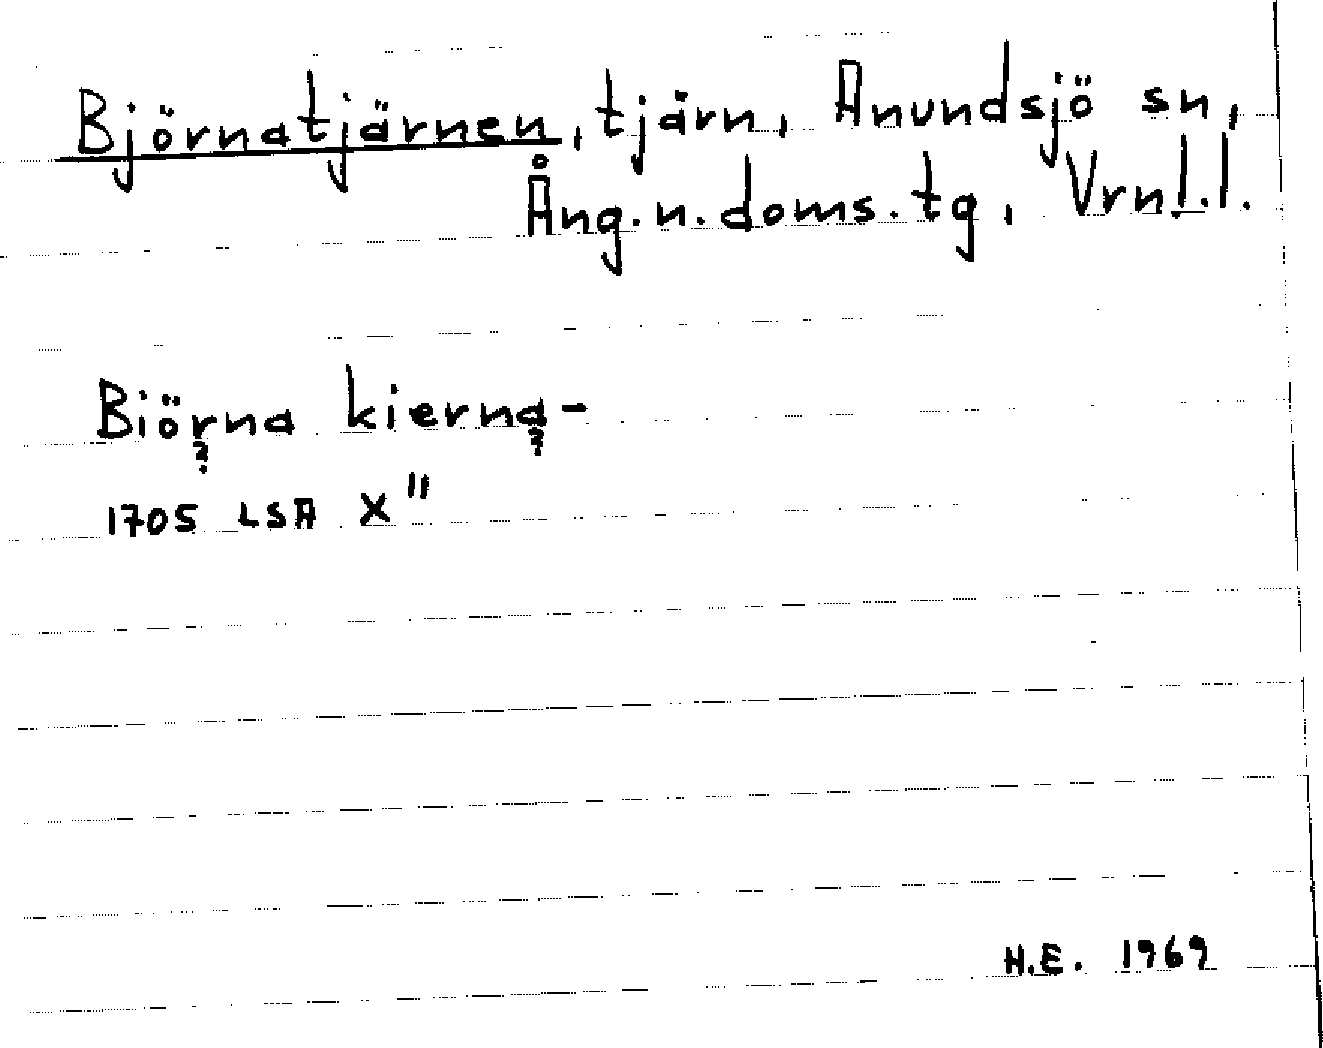 Björnatjärnen, tjärn, Anundsjö sn,
Ång.n.doms.tg, Vrnl.l.
Biörna kierna-
? ?
1705 LSA X"
H.E. 1969